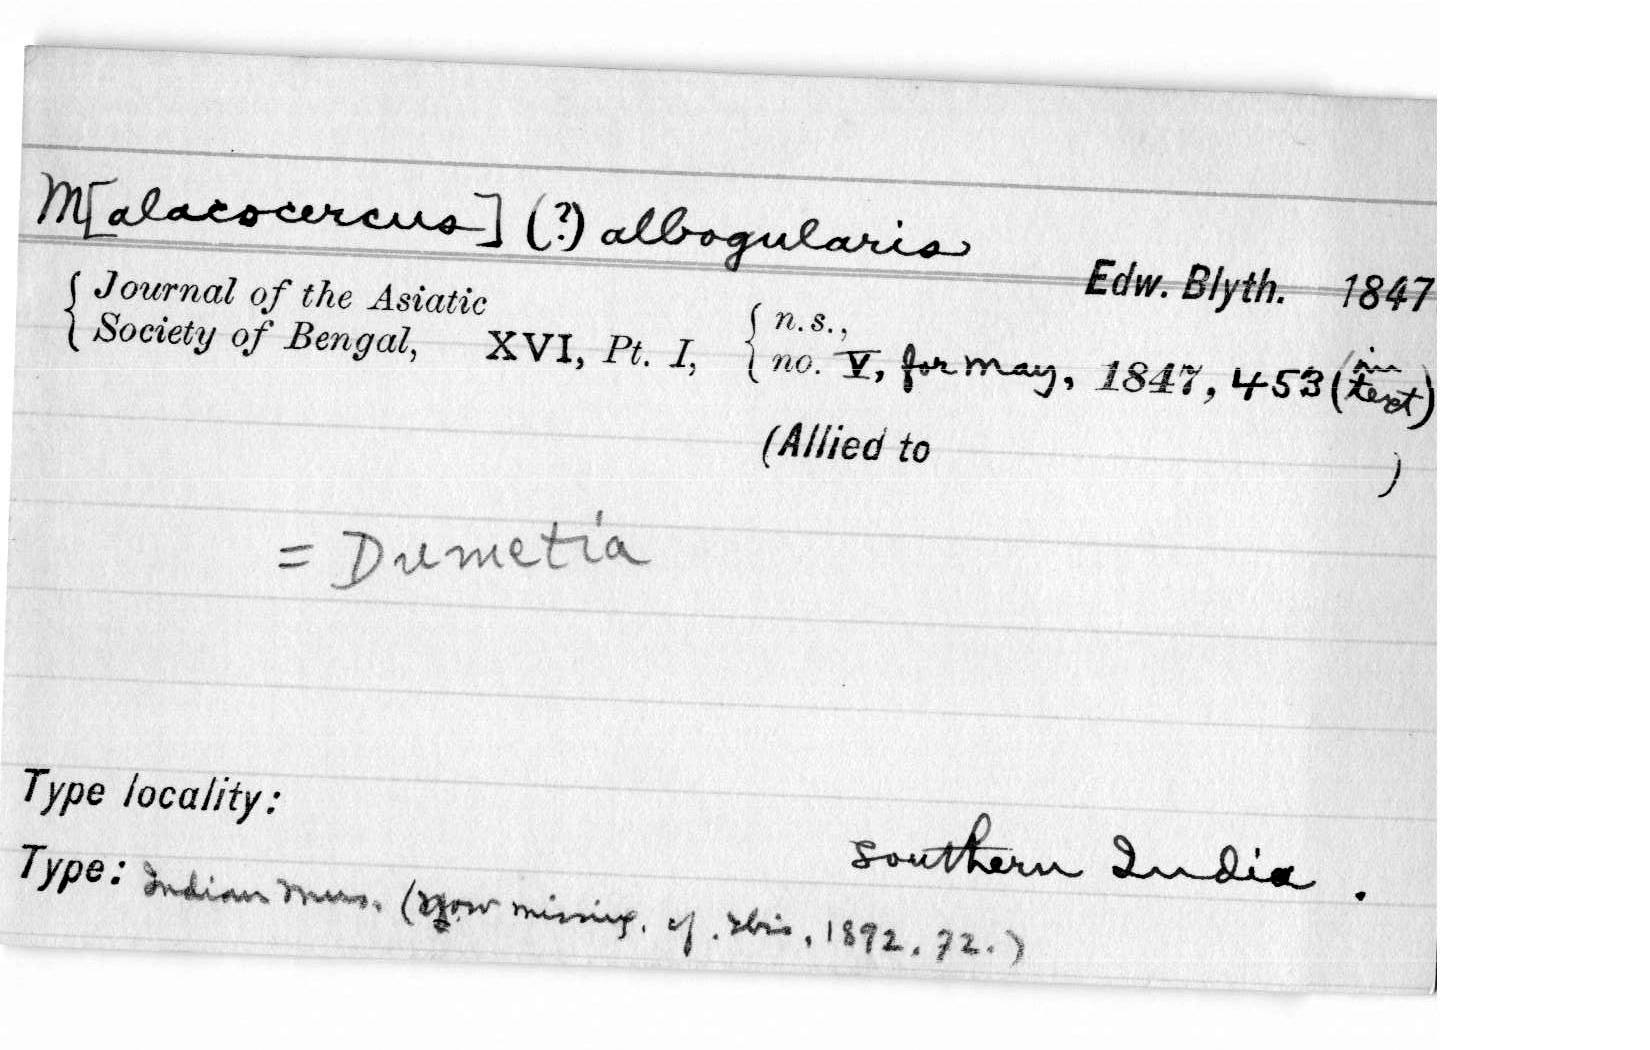 M[alacocercus] (?) albogularis
Edw. Blyth. 1847
Journal of the Asiatic
Society of Bengal, XVI, Pt. I, n.s.,
no. V, for May, 1847, 453 (in text)
(Allied to )
= Dumetia
Type locality:
Southern India.
Type: Indian Mus. (Now missing. cf. Ibis, 1892, 72.)